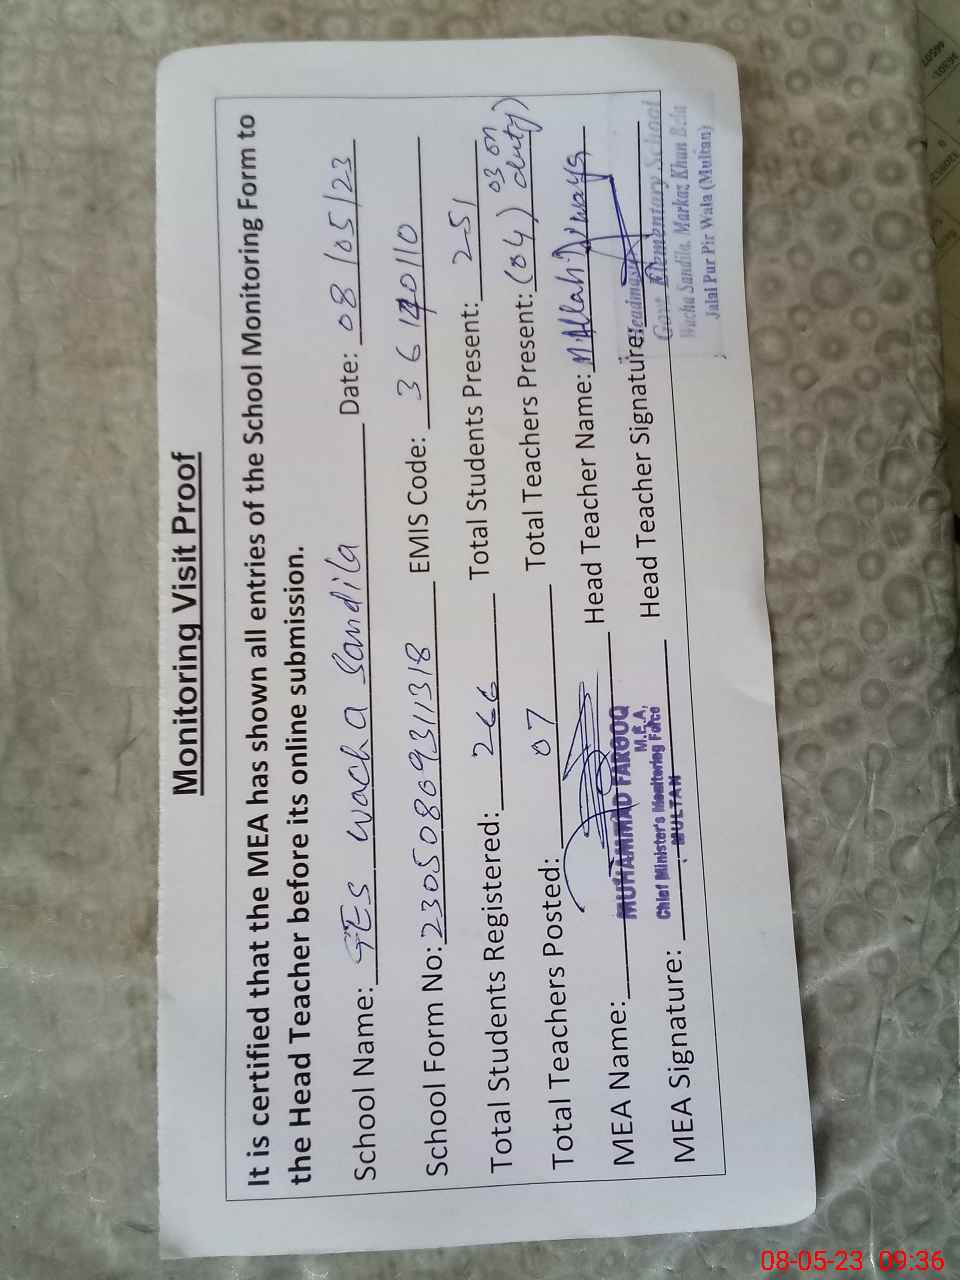 Monitoring Visit Proof
It is certified that the MEA has shown all entries of the School Monitoring Form to
the Head Teacher before its online submission.
School Name: GES Wacha Sandila Date: 08/05/23
School Form No: 23050809311318 EMIS Code: 36140110
Total Students Registered: 266 Total Students Present: 251
Total Teachers Posted: 07 Total Teachers Present: (04) 03 on duty)
MEA Name: Head Teacher Name: M. Allah
MUHAMMAD FAROOQ
M.E.A,
Chief Minister's Monitoring Force
MULTAN
MEA Signature: Head Teacher Signature:
Headmaster
Govt. Elementary School
Wacha Sandila, Markaz Khan Bela
Jalal Pur Pir Wala (Multan)
08-05-23 09:36